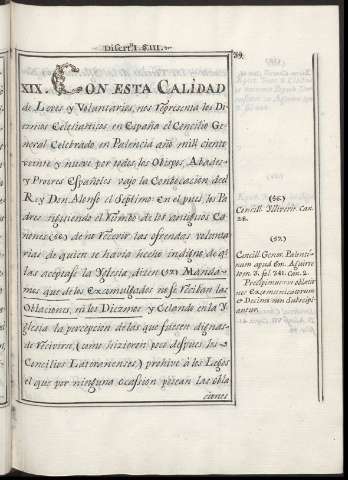 Disert.ⁿ I. §.III.
39
XIX. CON ESTA CALIDAD
de Leves y Voluntarios, nos representa los Di-
ezmos Eclesiasticos en España el Concilio Ge-
neral Celebrado en Palencia año mil ciento
veinte y nueve por todos los Obispos, Abades
y Proceres Españoles vajo la Conbocacion del
Rey Don Alonso el Septimo en el qual los Pa-
dres siguiendo el rumbo de los antiguos Ca-
nones (56) de no recevir las ofrendas volunta-
rias de quien se havia hecho indigno de q.e
las aceptase la Yglesia, dicen (57) Manda-
mos que de los Excomulgados no se reciban las
Oblaciones, ni los Diezmos y Celando en la Y-
glesia la percepcion de los que fuesen dignas
de recivirse, (como hizieron poco despues los
Concilios Lateranenses) prohive à los Legos
el que por ninguna ocasion posean las obla
ciones
(56)
Concil. Illiverit. Can.
28.
(57)
Concil. Gener. Palenti-
num apud Em. Aguirre
tom. 3. fol. 341. Can. 2.
Precipimus ut oblatio
nes excomunicatorum
et Decima non Suscipi-
antur.